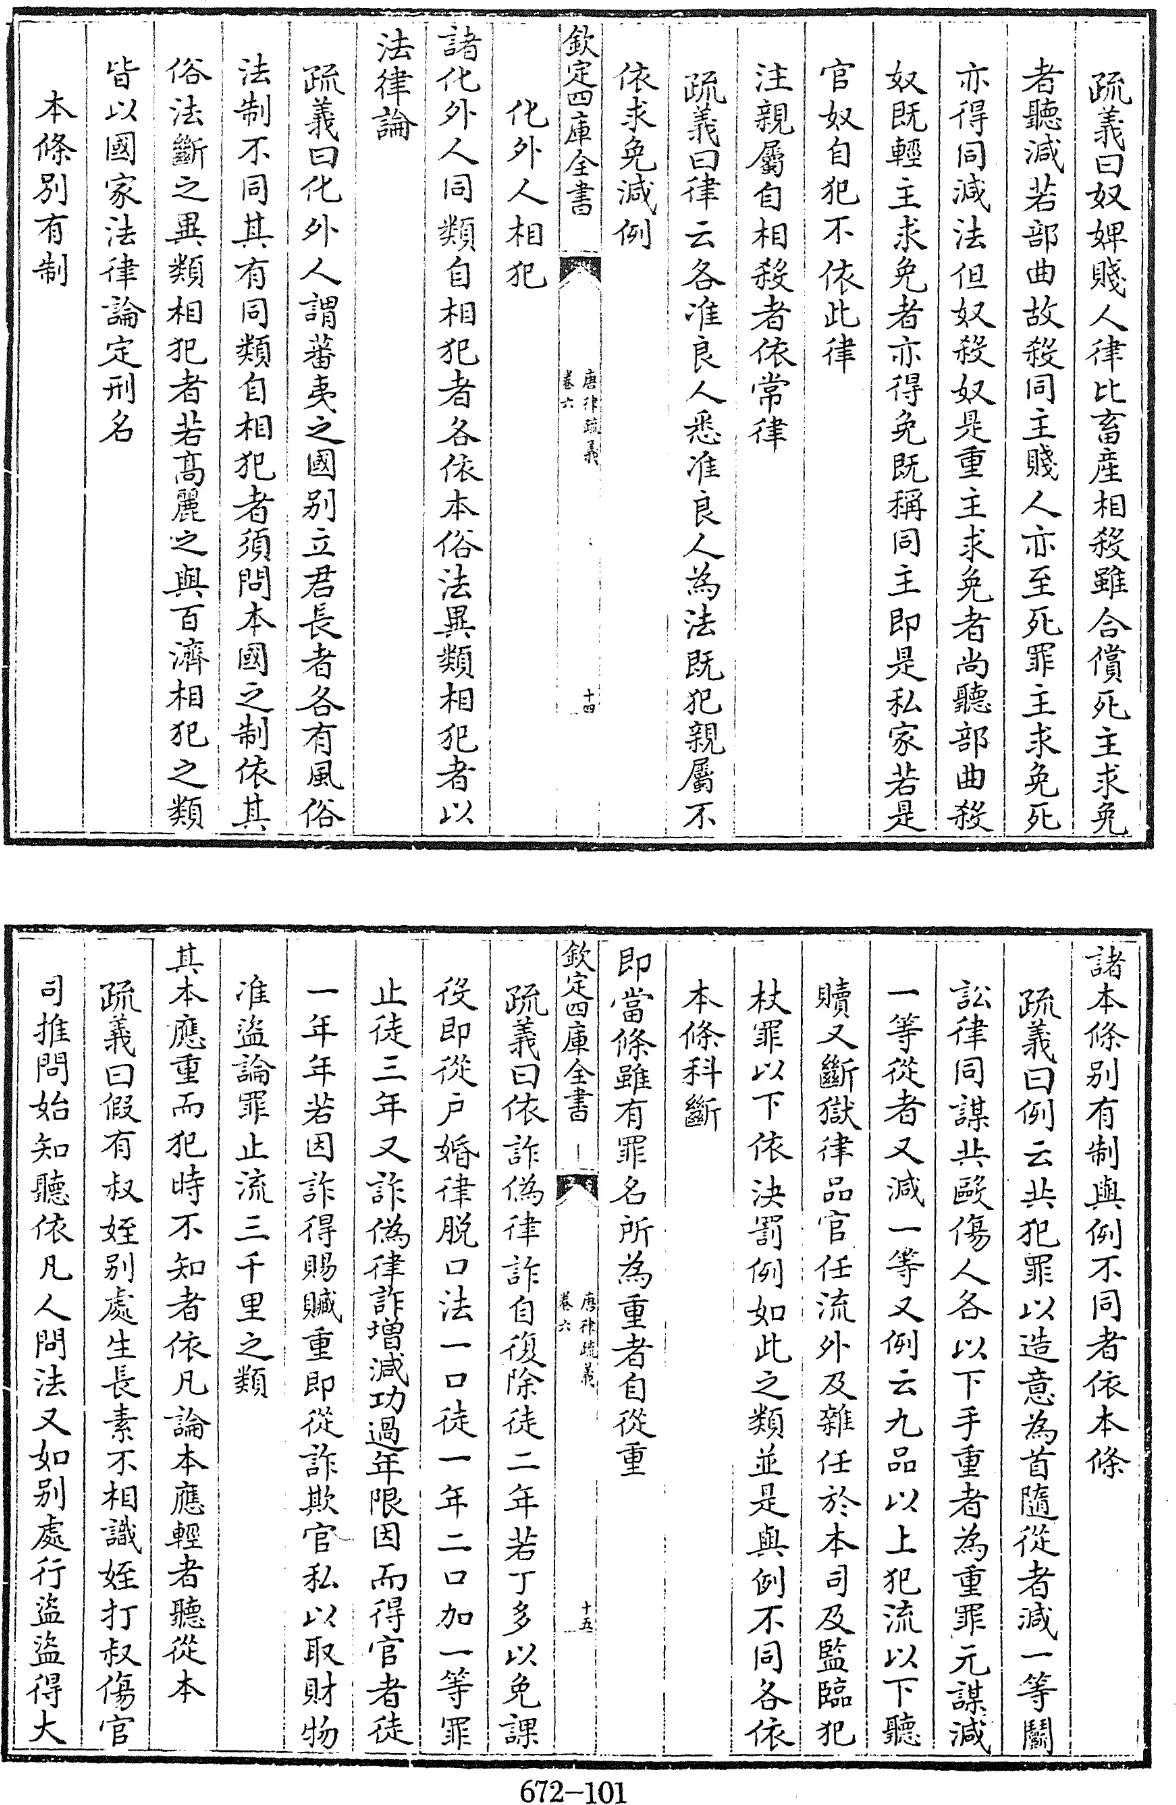 疏義曰奴婢賤人律比畜産相殺雖合償死主求免
者聽減若部曲故殺同主賤人亦至死罪主求免死
亦得同減法但奴殺奴是重主求免者尚聽部曲殺
奴既輕主求免者亦得免既稱同主即是私家若是
官奴自犯不依此律
注親屬自相殺者依常律
疏義曰律云各准良人悉准良人為法既犯親屬不
依求免減例
欽定四庫全書
唐律疏義
卷六
十四
化外人相犯
諸化外人同類自相犯者各依本俗法異類相犯者以
法律論
疏義曰化外人謂蕃夷之國别立君長者各有風俗
法制不同其有同類自相犯者須問本國之制依其
俗法斷之異類相犯者若髙麗之與百濟相犯之類
皆以國家法律論定刑名
本條别有制
諸本條别有制與例不同者依本條
疏義曰例云共犯罪以造意為首隨從者減一等鬭
訟律同謀共毆傷人各以下手重者為重罪元謀減
一等從者又減一等又例云九品以上犯流以下聽
贖又斷獄律品官任流外及雜任於本司及監臨犯
杖罪以下依決罰例如此之類並是與例不同各依
本條科斷
即當條雖有罪名所為重者自從重
欽定四庫全書
唐律疏義
卷六
十五
疏義曰依詐偽律詐自復除徒二年若丁多以免課
役即從户婚律脱口法一口徒一年二口加一等罪
止徒三年又詐偽律詐增減功過年限因而得官者徒
一年年若因詐得賜贓重即從詐欺官私以取財物
准盜論罪止流三千里之類
其本應重而犯時不知者依凡論本應輕者聽從本
疏義曰假有叔姪别處生長素不相識姪打叔傷官
司推問始知聽依凡人問法又如别處行盜盜得大
672-101